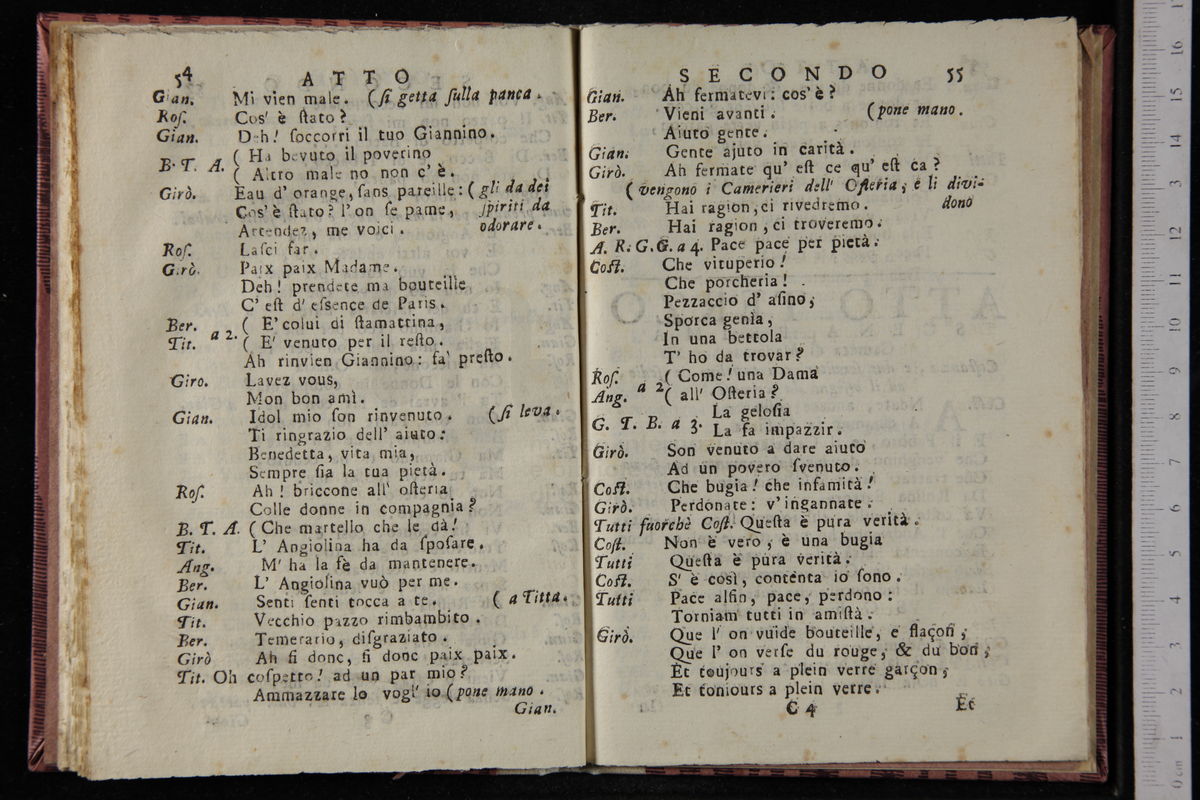 54 ATTO
Gian. Mi vien male. (ſi getta ſulla panca.
Roſ. Cos' è ſtato?
Gian. Deh! ſoccorri il tuo Giannino.
B. T. A. ( Ha bevuto il poverino
( Altro male no non c' è.
Girò. Eau d' orange, ſans pareille: ( gli da dei
Cos' è ſtato? l' on ſe pame, ſpiriti da
Attendez, me voici. odorare.
Roſ. Laſci far.
Girò. Paix paix Madame.
Deh! prendete ma bouteille
C' eſt d' eſsence de Paris.
Ber. ( E' colui di ſtamattina,
Tit. a 2. ( E' venuto per il reſto.
Ah rinvien Giannino: fa' preſto.
Giro. Lavez vous,
Mon bon amì.
Gian. Idol mio ſon rinvenuto. (ſi leva.
Ti ringrazio dell' aiuto:
Benedetta, vita mia,
Sempre ſia la tua pietà.
Roſ. Ah! briccone all' oſteria
Colle donne in compagnia?
B. T. A. ( Che martello che le dà!
Tit. L' Angiolina ha da ſpoſare.
Ang. M' ha la fè da mantenere.
Ber. L' Angiolina vuò per me.
Gian. Senti ſenti tocca a te. ( a Titta.
Tit. Vecchio pazzo rimbambito.
Ber. Temerario, diſgraziato.
Girò Ah fi donc, fi donc paix paix.
Tit. Oh coſpetto! ad un par mio?
Ammazzare lo vogl' io (pone mano.
Gian.
SECONDO 55
Gian. Ah fermatevi: cos' è?
Ber. Vieni avanti. (pone mano.
Aiuto gente.
Gian. Gente ajuto in carità.
Girò. Ah fermate qu' eſt ce qu' eſt ca?
( vengono i Camerieri dell' Oſteria, e li divi-
Tit. Hai ragion, ci rivedremo. dono
Ber. Hai ragion, ci troveremo.
A. R. G. G. a 4. Pace pace per pietà.
Coſt. Che vituperio!
Che porcheria!
Pezzaccio d' aſino,
Sporca genìa,
In una bettola
T' ho da trovar?
Roſ. ( Come! una Dama
Ang. a 2 ( all' Oſteria?
La geloſia
G. T. B. a 3. La fa impazzir.
Girò. Son venuto a dare aiuto
Ad un povero ſvenuto.
Coſt. Che bugia! che infamità!
Girò. Perdonate: v' ingannate.
Tutti fuorchè Coſt. Queſta è pura verità.
Coſt. Non è vero, è una bugia
Tutti Queſta è pura verità.
Coſt. S' è così, contenta io ſono.
Tutti Pace alfin, pace, perdono:
Torniam tutti in amiſtà.
Girò. Que l' on vuide bouteille, e flaçon,
Que l' on verſe du rouge, & du bon,
Et toujours a plein verre garçon,
Et toniours a plein verre.
C 4 Et